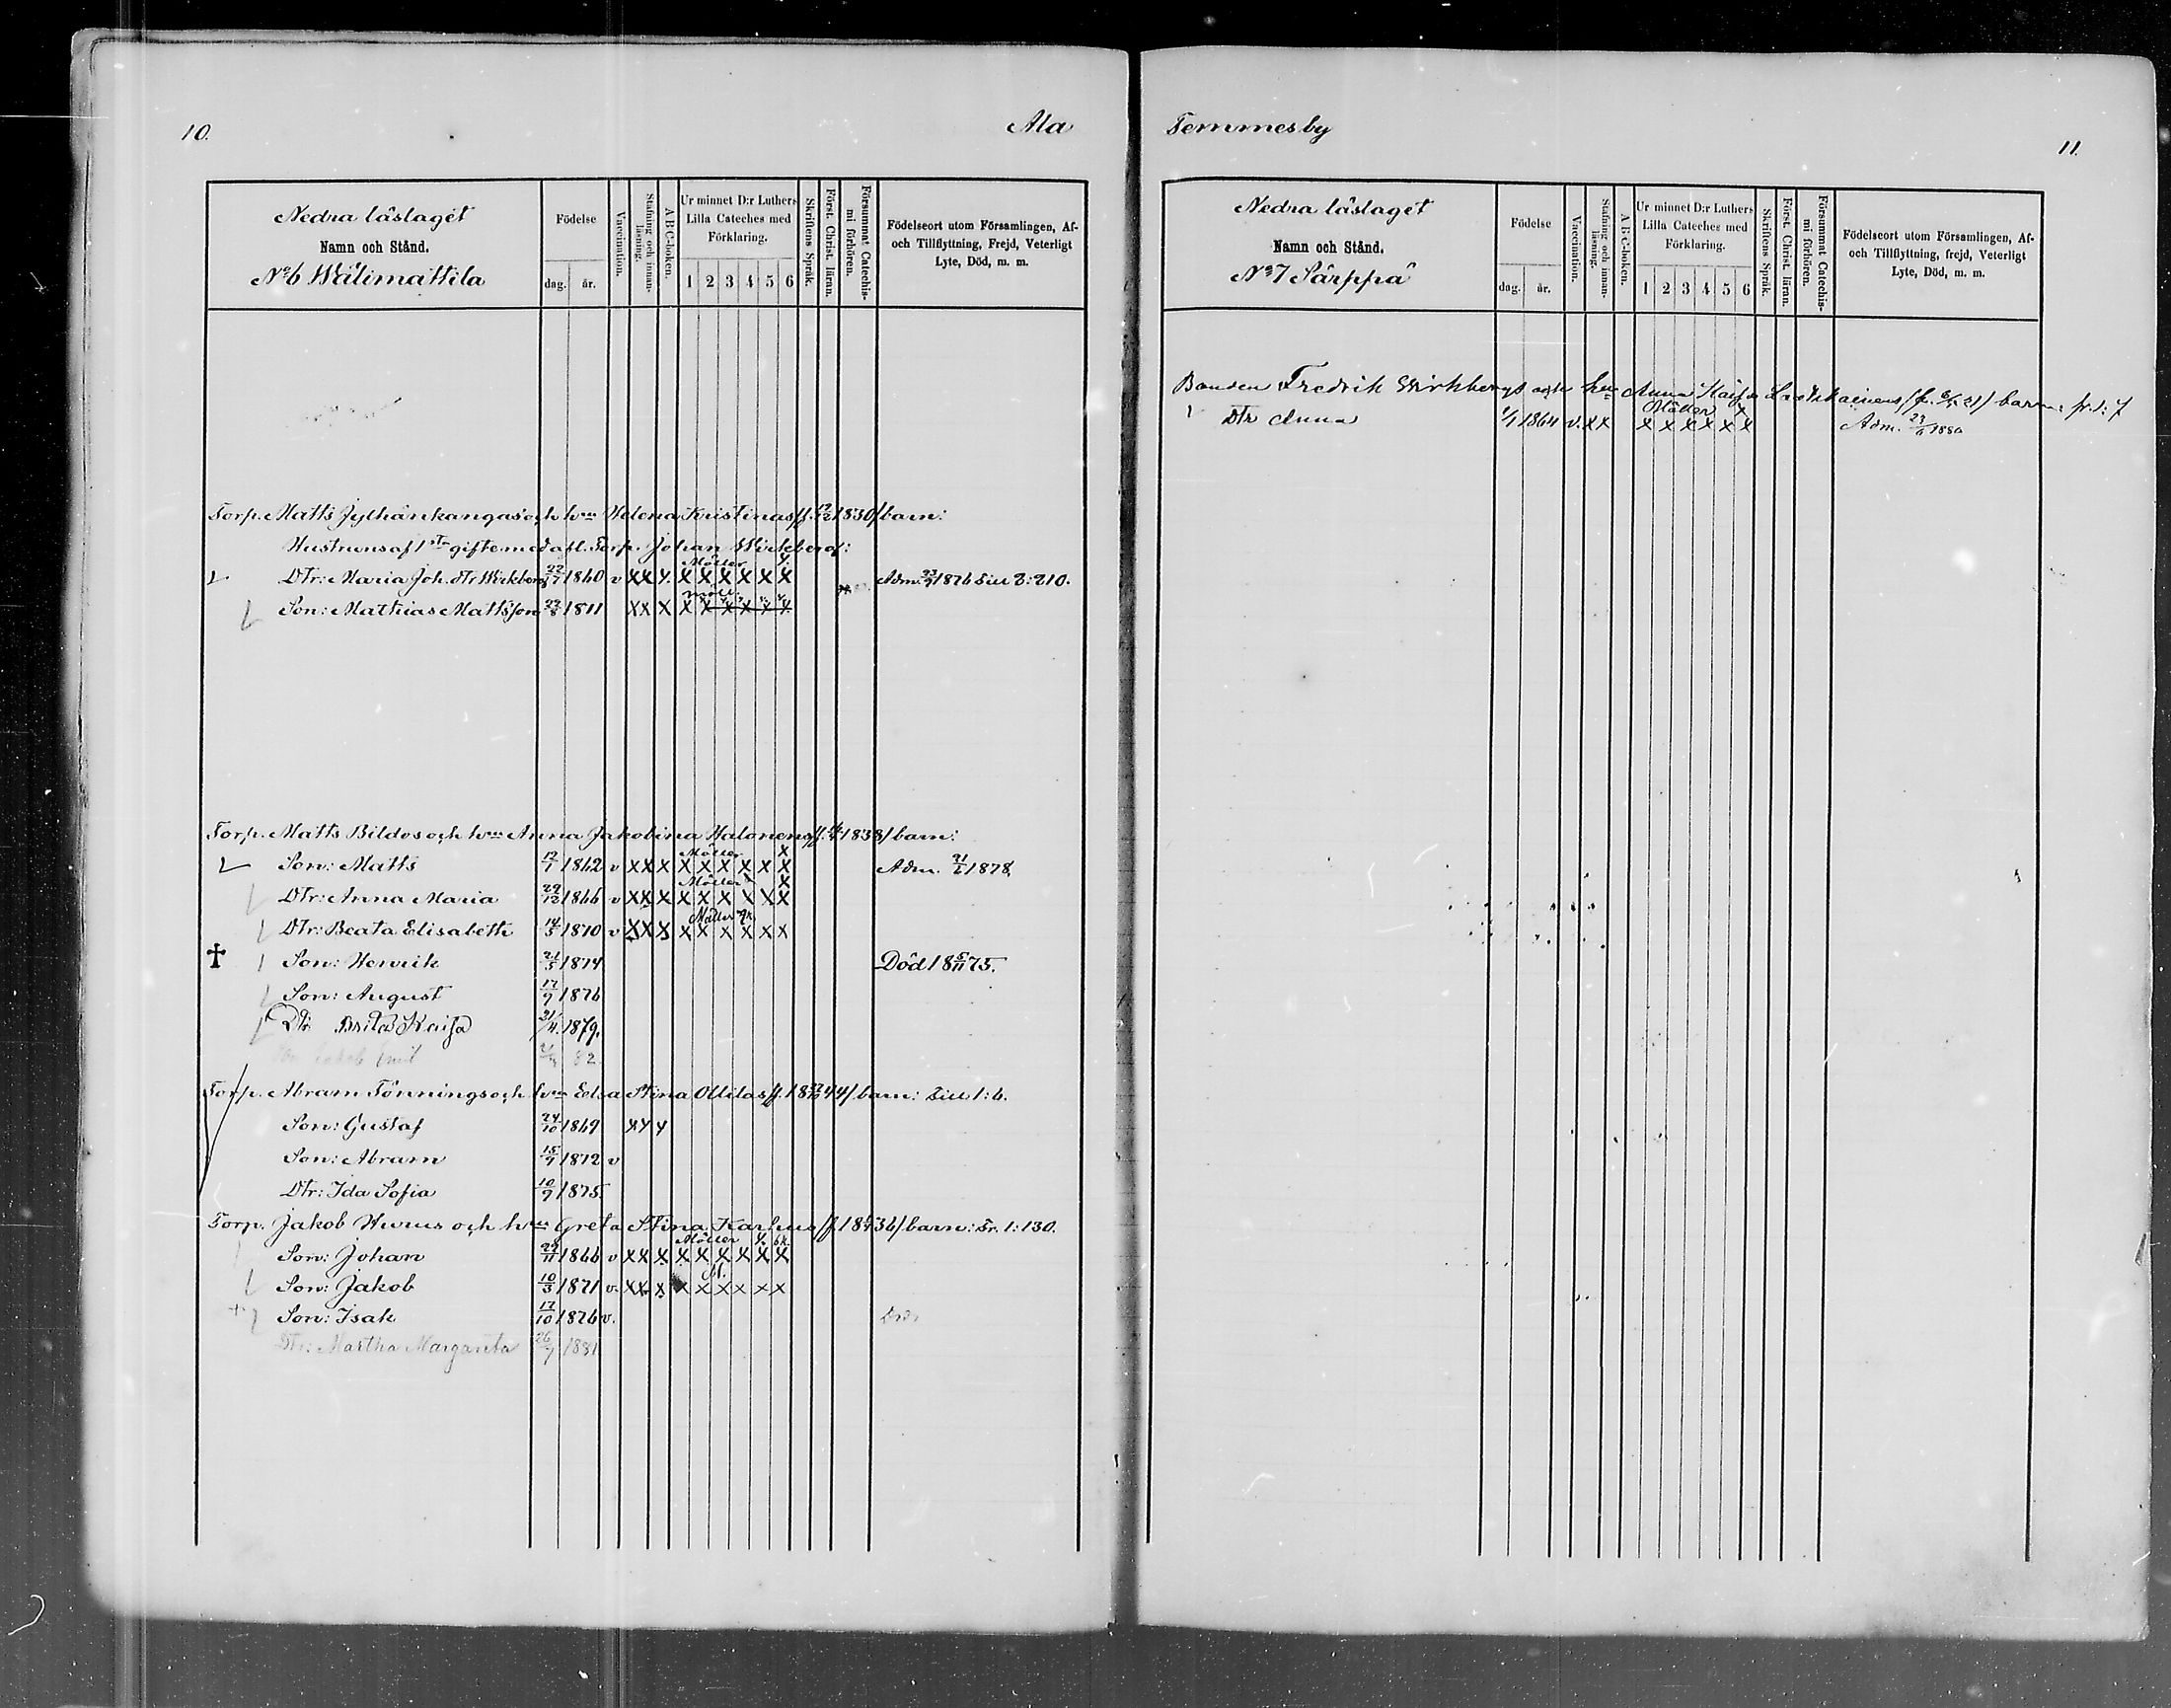 10.
Ala
Nedra läslaget
Namn och Stånd.
No 6 Wälimattila
Födelse
dag.
år.
Vaccination.
Stafning och innanläsning.
A B C-boken.
Ur minnet D:r Luthers Lilla Cateches med Förklaring.
1 2 3 4 5 6
Skriftens Språk.
Först. Christ. läran.
Försummat Catechismi förhören.
Födelseort utom Församlingen, Af- och Tillflyttning, Frejd, Veterligt Lyte, Död, m. m.
Torp. Matts Jylhänkangas och hun Helena Kristinas /f. 1830/ barn:
Hustruns af 1sta gifte med afl. Torp. Johan Wirkberg:
Möller
Dtr: Maria Joh. dtr Wirkberg 1860 v x x x x x x x x x Adm. 1876 Till 2:210.
Möll.
Son: Mathias Mattsson 1871 x x x x x x x x x
Torp. Matts Bildos och hun Anna Jakobina Halonens /f. 1838/ barn:
Möller x
Son: Matts 1862 v x x x x x x x x x Adm. 1878
Möller x
Dtr: Anna Maria 29/12 1866 v x x x x x x x x x
Möller
Dtr: Beata Elisabeth 14/3 1870 v x x x x x x x x x
† Son: Henrik 21/3 1874 Död 18 5/11 75.
Son: August 17/9 1876
Dtr Brita Kaisa 21/4. 1879.
Jakob Emil 82
Torp. Abram Tönnings och hun Edsa Stina Ollilas /f. 18 44/ barn: Till 1:6.
Son: Gustaf 24/10 1869 x x x
Son: Abram 15/9 1872 v
Dtr: Ida Sofia 10/9 1875.
Torp. Jakob Hurus och hun Greta Stina Karhus /f 18 36/ barn: Fr. 1:130.
Möller
Son: Johan 29/11 1866 v x x x x x x x x x
M.
Son: Jakob 10/3 1871 v. x x x x x x x x x
+ Son: Isak 17/10 1876 v.
Dtr: Martha Margareta 26/9 1881
Temmesby
11.
Nedra läslaget
Namn och Stånd.
No 7 Särppä
Födelse
dag.
år.
Vaccination.
Stafning och innanläsning.
A B C-boken.
Ur minnet D:r Luthers Lilla Cateches med Förklaring.
1 2 3 4 5 6
Skriftens Språk.
Först. Christ. läran.
Försummat Catechismi förhören.
Födelseort utom Församlingen, Af- och Tillflyttning, frejd, Veterligt Lyte, Död, m. m.
Bonden Fredrik Wirkbergs och hu Anna Kaisa barn: fr. 1:7
Möller x
Dtr Anna 1/1 1864 v. x x x x x x x x Adm. 1880